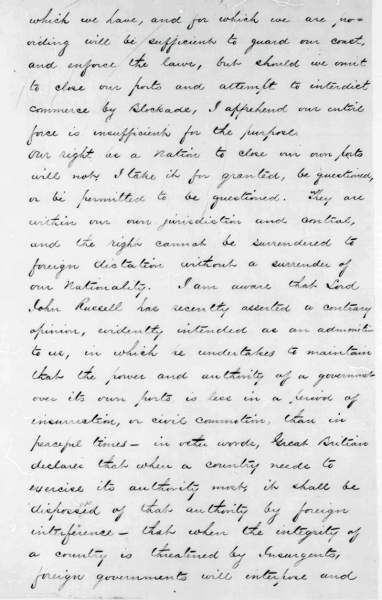 which we have, and for which we are pro-
viding will be sufficient to guard our coast,
and enforce the laws, but should we omit
to close our ports and attempt to interdict
commerce by Blockade, I apprehend our entire
force is insufficient for the purpose.
Our right as a Nation to close our own ports
will not, I take it for granted, be questioned,
or be permitted to be questioned. They are
within our own jurisdiction and control,
and the right cannot be surrendered to
foreign dictation without a surrender of
our Nationality. I am aware that Lord
John Russell has recently asserted a contrary
opinion, evidently intended as an admonition
to us, in which he undertakes to maintain
that the power and authority of a government
over its own ports, is less in a period of
insurrection, or civil commotion, than in
peaceful times — in other words, Great Britian
declares that when a country needs to
exercise its authority most, it shall be
dispossed of that authority by foreign
interference — that when the integrity of
a country is threatened by Insurgents,
foreign governments will interpose and